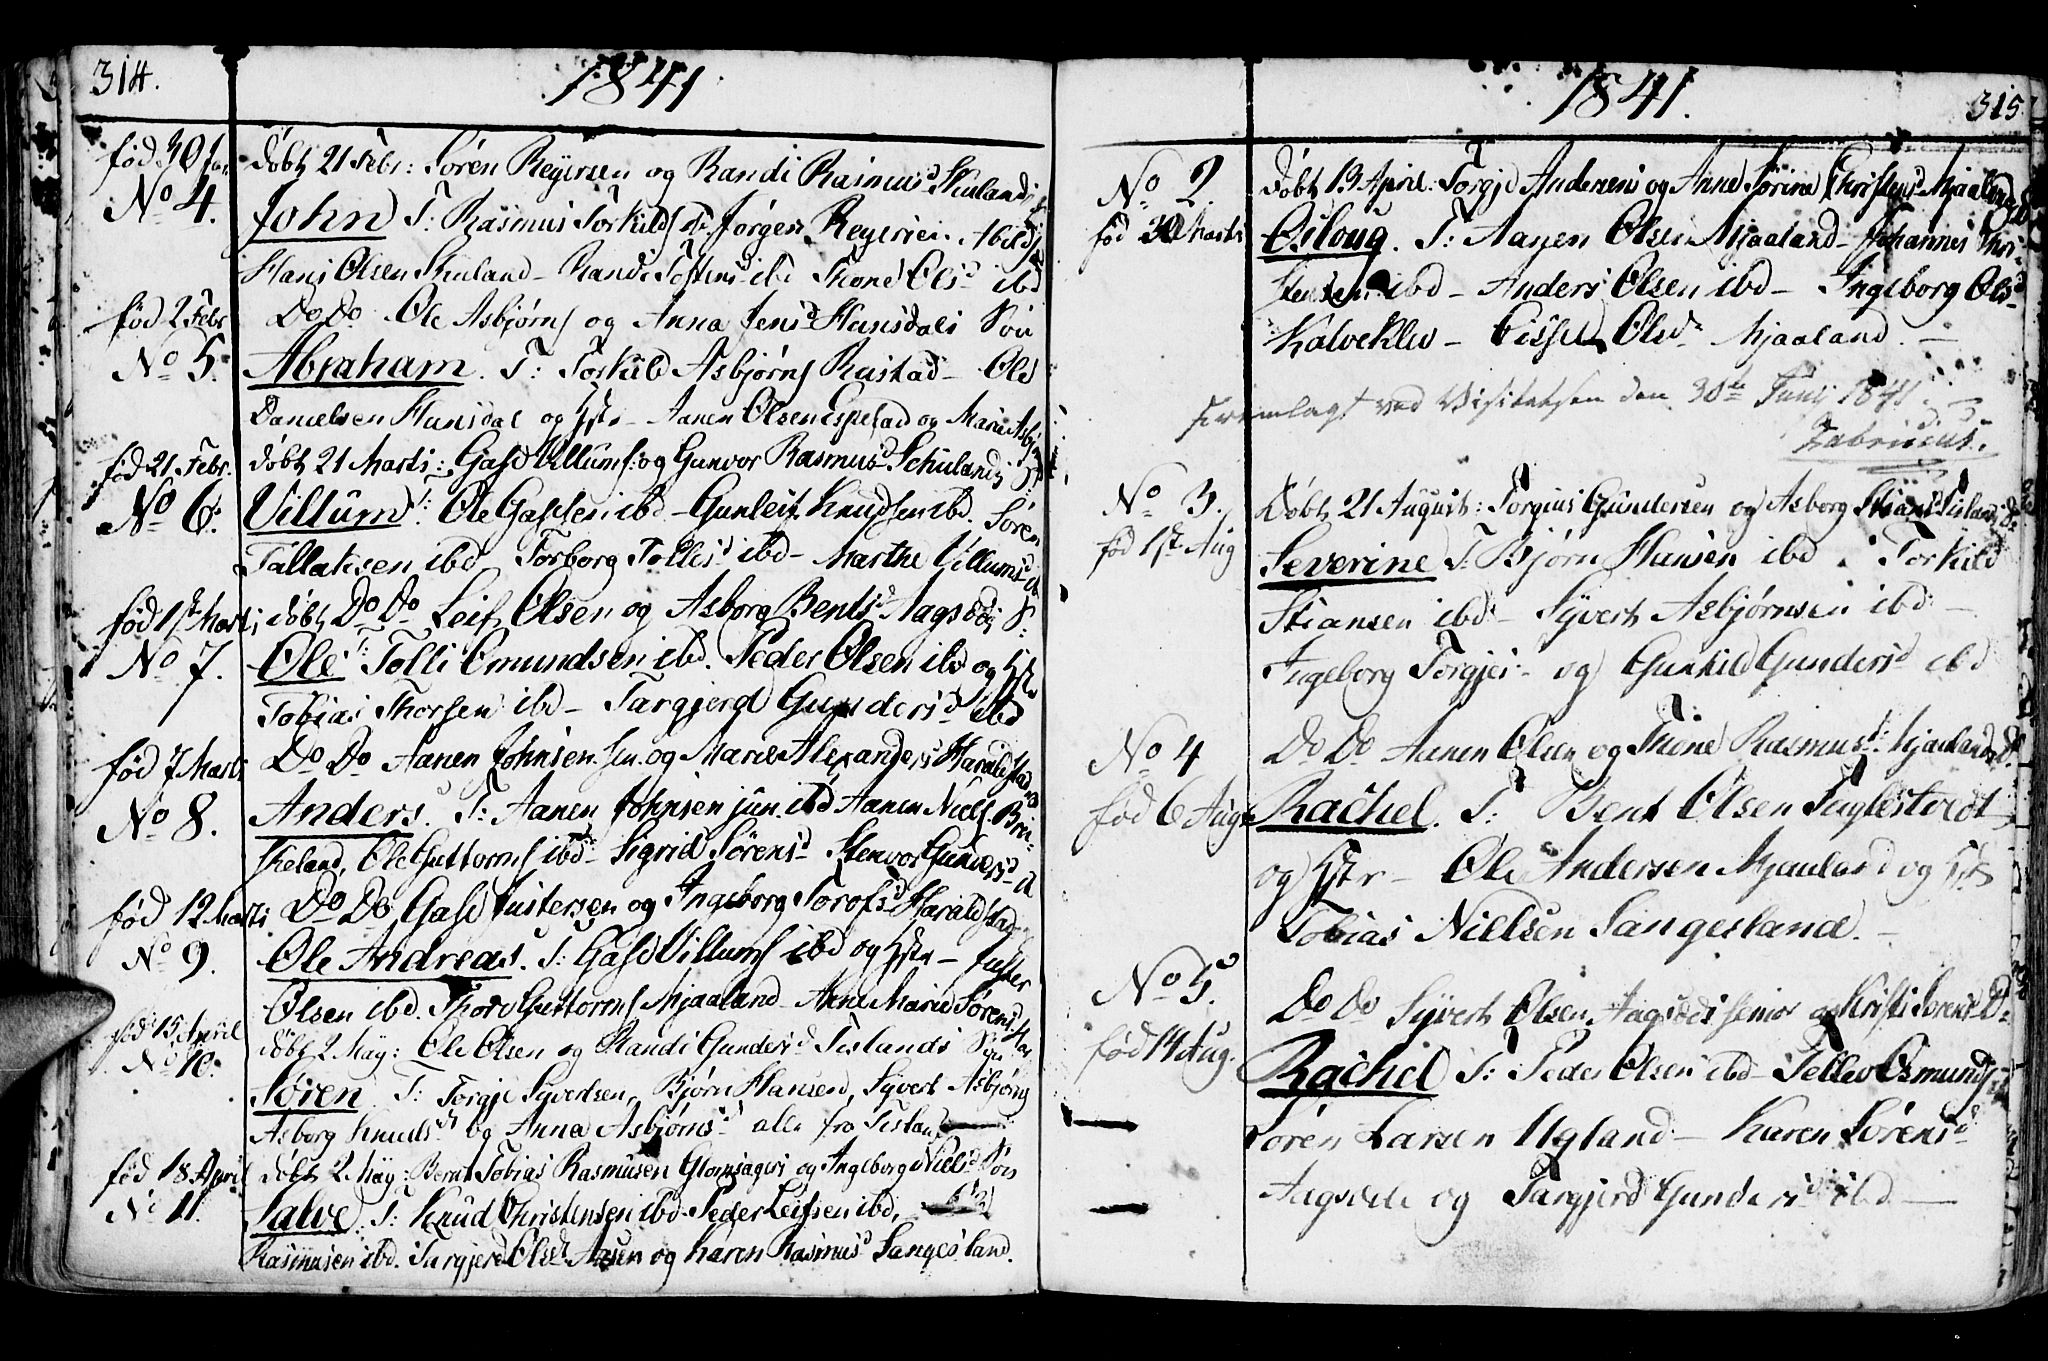 314.
1841
fød 30 Jan
døbt 21 Febr: Søren Reyersen og Randi Rasmusd Skulands
No 4.
John T: Rasmus Torkilds Jørgen Reyersen Abilds
Hans Olsen Skuland - Randi ibd Thone Olsd ibd
fød 2 Febr
Do Do Ole Asbjørns og Anna Jensd Hunsdals Søn
No 5.
Abraham. T: Torkild Asbjørns Rustad - Ole
Danielsen Hunsdal og Hstr - Aanen Olsen Espestad og Marie Asbj
fød 21 Febr.
døbt 21 Marts: Gasd Villums: og Gunvor Rasmusd Schulands
No 6.
Villum T: Ole Gasdsen ibd - Gunleif Knudsen ibd. Søren
Tallaksen ibd Torborg Tollisd ibd - Marthe Villumsd ib
fød 1ste Marts
døbt Do Do Leif Olsen og Asborg Bentsd Aagsdes S:
No 7.
Ole T: Tolli Omundsen ibd. Peder Olsen ibd og Hstr
Tobias Thorsen ibd - Targjerd Gundersd ibd
fød 7 Marts
Do Do Aanen Johnsen sen. og Marie Alexandersd Haraldstad
No 8.
Anders. T: Aanen Johnsen jun. ibd Aanen Niels Bri-
keland, Ole Guttorms ibd - Sigrid Sørensd Stenvor Gundersd
fød 12 Marts
Do Do Gasd Justersen og Ingeborg Torofsd Haraldstad
No 9.
Ole Andreas. T: Gasd Villums ibd og Hstr - Juster
Olsen ibd. Thore Guttorms Mjaaland - Anne Marie Sørensd
fød 15 April
døbt 2 May: Ole Olsen og Randi Gundersd Tislands Søn
No 10.
Søren. T: Torgje Syvertsen, Bjørn Hansen, Syvert Asbjørns
Asborg Knudsd og Anna Asbjørnsd alle fra Tisland
fød 18 April
døbt 2 May: Bernt Tobias Rasmusen Glomsagers og Ingeborg Nielsd Søn
No 11.
Salve. T: Knud Christensen ibd - Peder Leifsen ibd,
Rasmusen ibd. Targjerd Olsd Aasen og Karen Rasmusd Sangesland.
1841.
315
No 2.
døbt 13 April: Torgje Andersens og Anne Sørine Christensd Mjaalands
fød 30 Marts
Osloug. T: Aanen Olsen Mjaaland - Johannes Chri-
stensen ibd - Anders Olsen ibd - Ingeborg Olsd
Kalveklev - Sissel Olsd Mjaaland. -
fremlagt ved Visitatsen den 30te Juny 1841.
Fabricius.
No 3.
Døbt 21 August: Torgius Gundersen og Asborg Stiansd Tislands D.
fød 1ste Aug
Severine T: Bjørn Hansen ibd Torkild
Stiansen ibd - Syvert Asbjørnsen ibd -
Ingeborg Torgjes- og Gunhild Gundersd ibd
No 4
Do Do Aanen Olsen og Thone Rasmusd Mjaalands D.
fød 6 Aug
Rachel. T: Bent Olsen Fuglestvedt
og Hstr - Ole Andersen Mjaaland og Hstr
Tobias Nielsen Sangesland. -
No 5.
Do Do Syvert Olsen Aagsdes senior og Kristi Sørensd D.
fød 14 Aug.
Rachel T: Peder Olsen ibd - Tellev Osmunds
Søren Larsen Ugland - Karen Sørensd
Aagsdele og Targjerd Gundersd ibd -